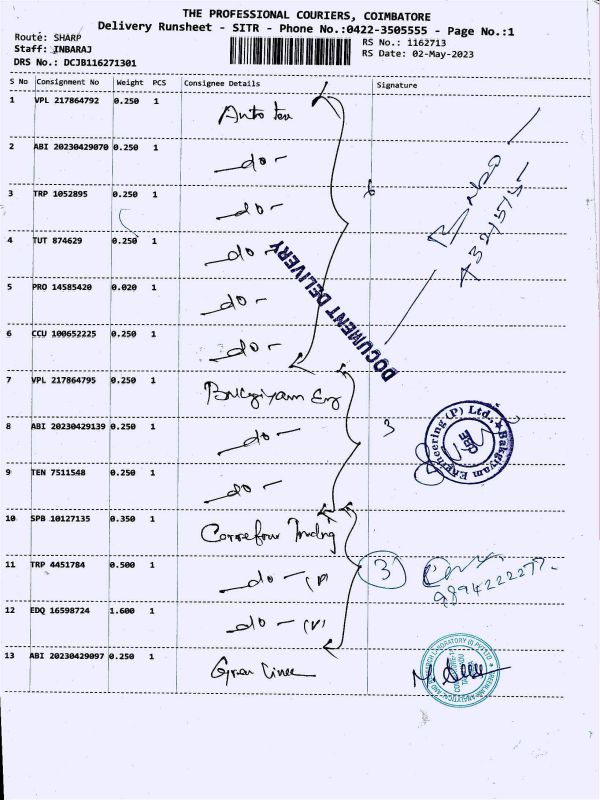 THE PROFESSIONAL COURIERS, COIMBATORE
Delivery Runsheet - SITR - Phone No.:0422-3505555 - Page No.:1
Route: SHARP
Staff: INBARAJ
DRS No.: DCJB116271301
RS No.: 1162713
RS Date: 02-May-2023
S No Consignment No Weight PCS Consignee Details Signature
1 VPL 217864792 0.250 1 Auto
2 ABI 20230429070 0.250 1 -do-
3 TRP 1052895 0.250 1 -do- 6
4 TUT 874629 0.250 1 -do-
5 PRO 14585420 0.020 1 -do-
6 CCU 100652225 0.250 1 -do-
DOCUMENT DELIVERY
7 VPL 217864795 0.250 1 Bakgiyam Eng
8 ABI 20230429139 0.250 1 -do- 3
Bakgiyam Engineering (P) Ltd.,
CBE
9 TEN 7511548 0.250 1 -do-
10 SPB 10127135 0.350 1 Carrefour Trading
11 TRP 4451784 0.500 1 -do- 3
9894222277
12 EDQ 16598724 1.600 1 -do-
13 ABI 20230429097 0.250 1